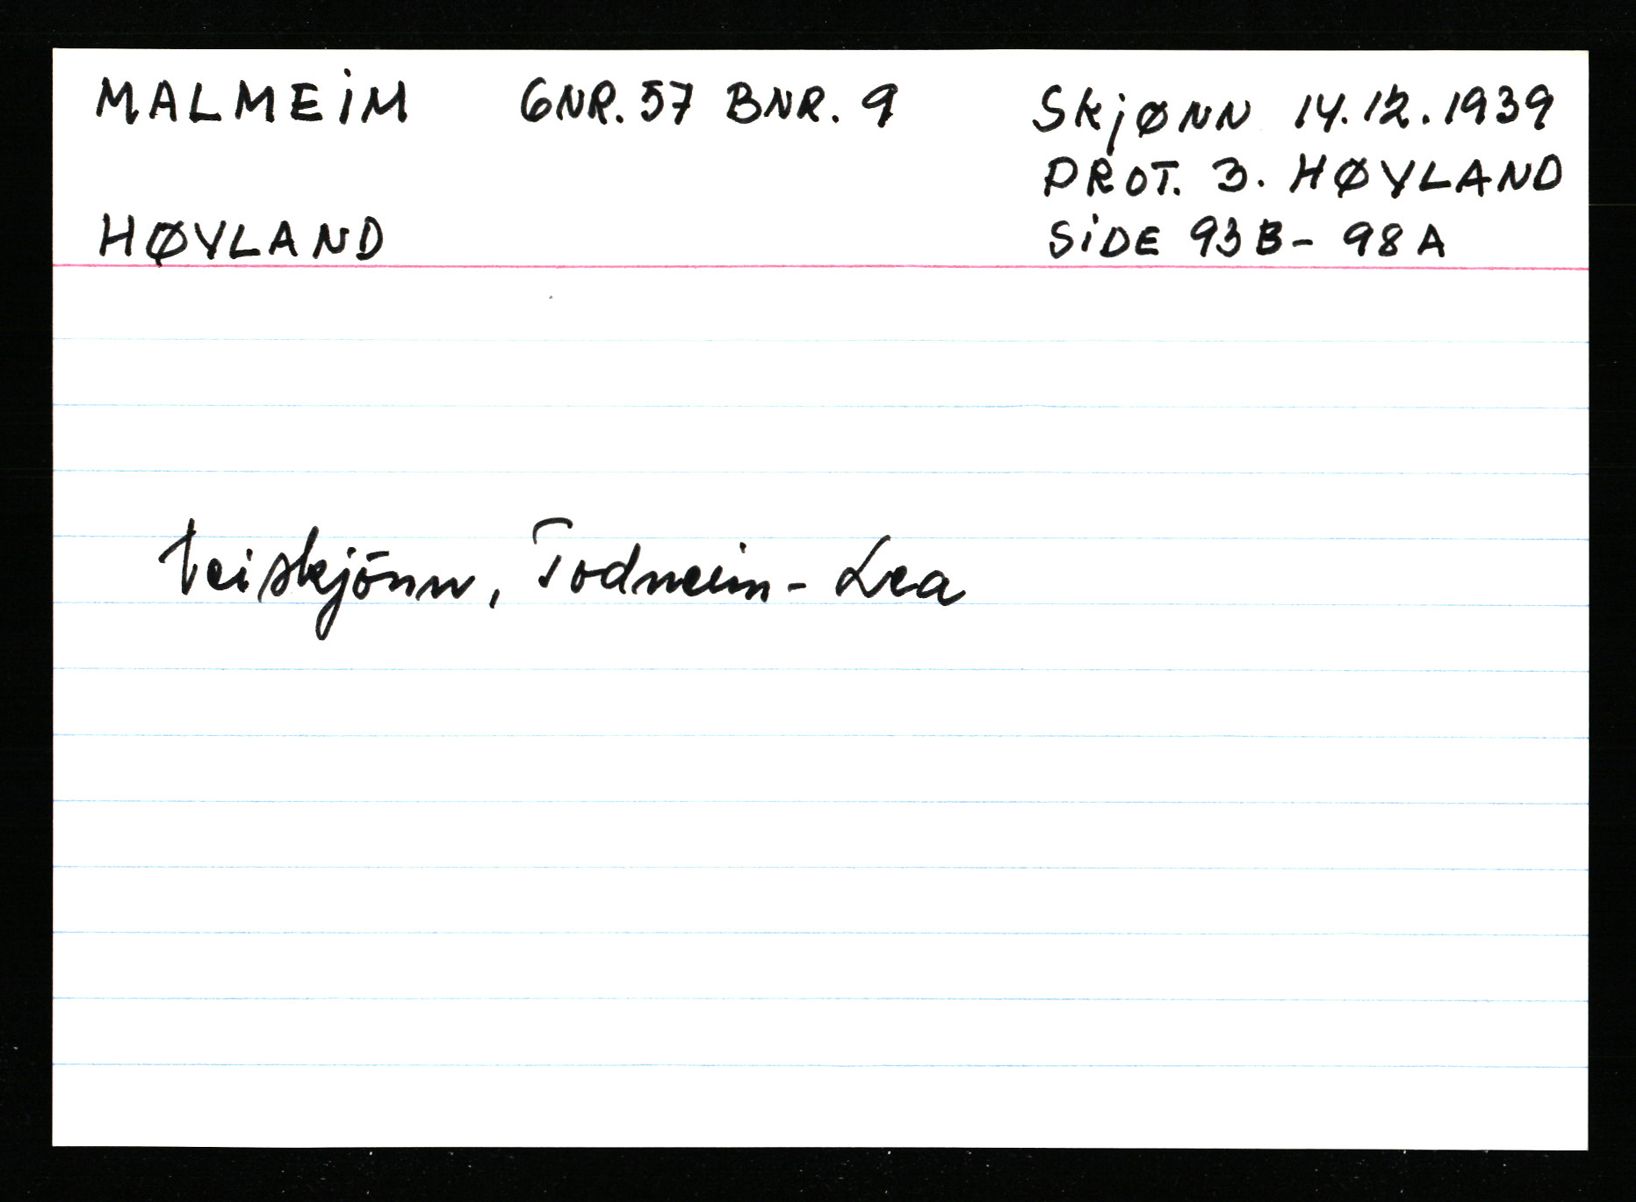 MALMEIM GNR. 57 BNR. 9 Skjønn 14.12.1939
PROT. 3. HØYLAND
HØYLAND SIDE 93B - 98A
Veiskjønn, Todneim - Lea